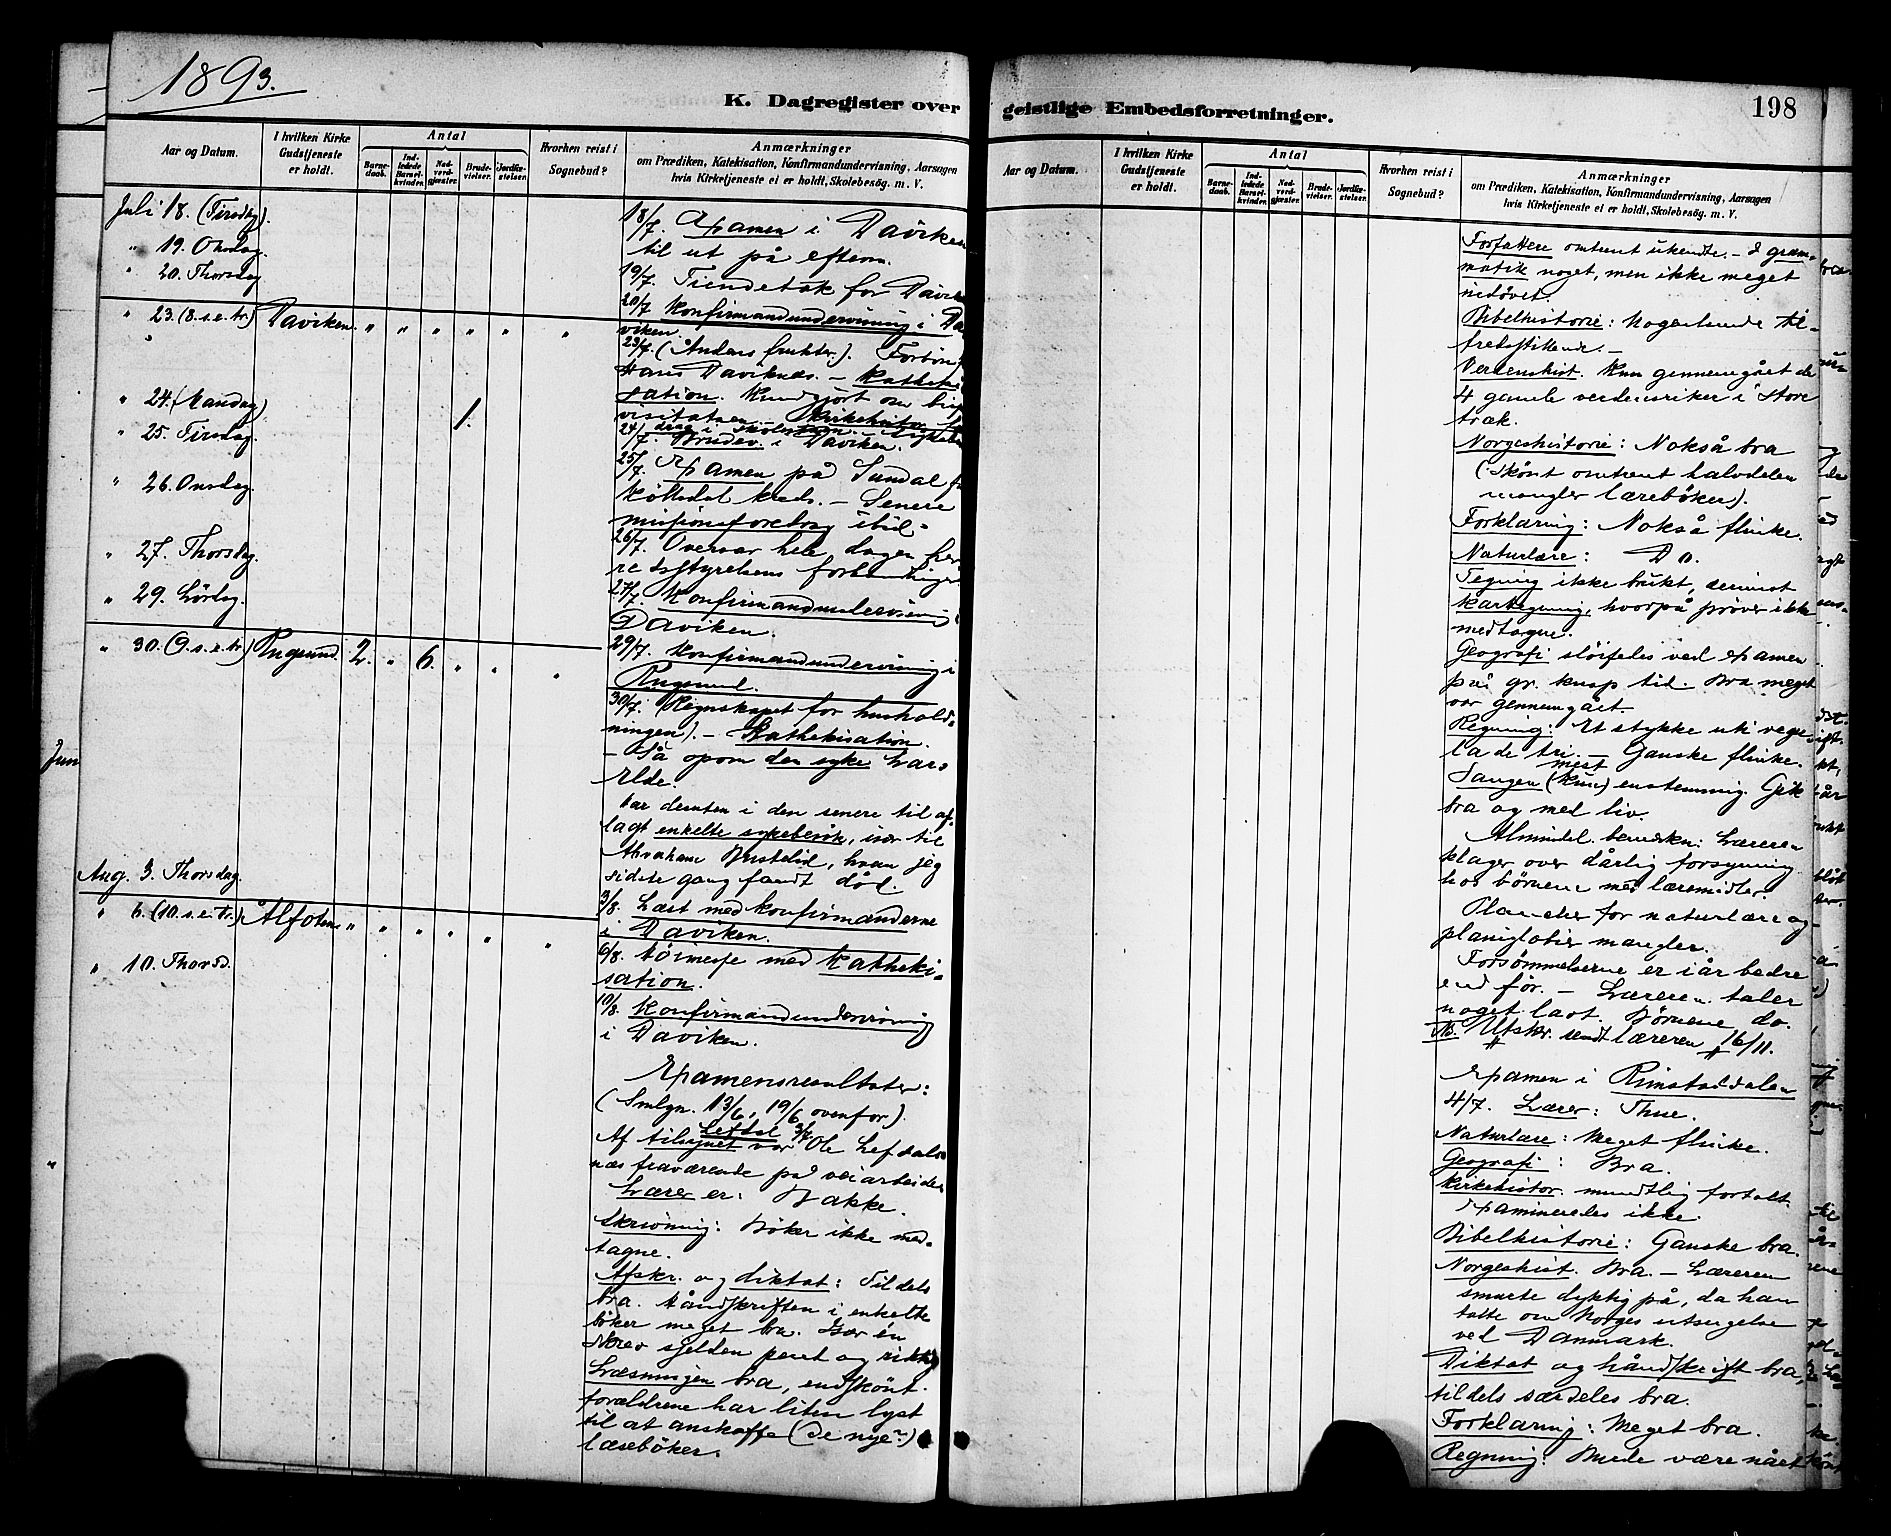 1893.
K. Dagregister over geistlige Embedsforretninger.
198
Aar og Datum.
I hvilken Kirke Gudstjeneste er holdt.
Antal
Barnedaab.
Indledede Barselkvinder.
Nadverdgjæster.
Brudevielser.
Jordfæstelser.
Hvorhen reist i Sognebud?
Anmærkninger
om Prædiken, Katekisation, Konfirmandundervisning, Aarsagen
hvis Kirketjeneste ei er holdt, Skolebesøg. m. V.
Juli 18. (Tirsdag).
" 19. Onsdag.
" 20. Thorsdag
" 23. (8. s. e. tr.) Daviken. " " " " " "
" 24. (Mandag) 1.
" 25. Tirsdag.
" 26. Onsdag.
" 27. Thorsdag.
" 29. Lördag.
" 30. (9. s. e. tr.) Rugsund. 2. " 6. " " "
Aug. 3. Thorsdag.
" 6. (10. s. e. tr.) Ålfoten " " " " " "
" 10. Thorsd.
18/7. Examen i Daviken
til ut på efterm.
19/7. Tiendetak for Davik
20/7 Konfirmandundervisning i Da
viken.
23/7. (Åndens frukter). Forbön
Hans Daviknes. – Katheki
sation. Kundgjort om bisp
visitatsen.
24/7. Brudev. i Daviken.
25/7. Examen på Sundal f
kreds. – Senere
missionsforedrag ibid.
26/7. Overvar hele dagen her
redsstyrelsens forhandlinger
27/7. Konfirmandundervisning i
Daviken.
29/7. Konfirmandundervisning i
Rugsund.
30/7. (Regnskapet for hushold-
ningen). – Kathekisation.
– Så opom den syke Lars
Elde.
har desuten i den senere til af-
lagt enkelte sykebesök, især til
Abraham hvem jeg
sidste gang fandt död.
3/8. Læst med konfirmanderne
i Daviken.
6/8. Höimesse med Katheki-
sation.
10/8. Konfirmandundervisning
i Daviken.
Examensresultater:
(Smlgn. 13/6, 19/6 ovenfor).
Lefdal 3/7
Af tilsynet var Ole Lefdals-
næs fraværende på veiarbeide.
Lærer er: Bakke.
Skrivning: Böker ikke med-
tagne.
Afskr. og diktat: Tildels
bra. Håndskriften i enkelte
böker meget bra. Især én
skrev sjelden pent og riktig
Læsningen bra, endskönt
forældrene har liten lyst
til at anskaffe (de nye?)
læsebøker.
Aar og Datum.
I hvilken Kirke Gudstjeneste er holdt.
Antal
Barnedaab.
Indledede Barselkvinder.
Nadverdgjæster.
Brudevielser.
Jordfæstelser.
Hvorhen reist i Sognebud?
Anmærkninger
om Prædiken, Katekisation, Konfirmandundervisning, Aarsagen
hvis Kirketjeneste ei er holdt, Skolebesøg. m. V.
Forfattere omtrent ukendte. – I gram-
matik noget, men ikke meget
indövet.
Bibelhistorie: Nogenlunde til-
fredsstillende. –
Verdenshist. Kun gennemgået de
4 gamle verdensriker i store
træk.
Norgeshistorie: Nokså bra
(skönt omtrent halvdelen
mangler læreböker).
Forklaring: Nokså flinke.
Naturlære: Do.
Tegning ikke brukt, derimot
kartegning, hvorpå prøver ikke
medtagne.
Geografi slöifedes ved examen
på gr. knap tid. Bra meget
var gennemgået.
Regning: Et stykke uti regu
la de tri. – Ganske flinke.
mest
Sangen (kun) enstemmig. Gik
bra og med liv.
Almindel. bemerkn: Læreren
klager over dårlig forsyning
hos börnene med læremidler.
Plancher for naturlære og
planiglober mangler.
Forsömmelserne er i år bedre
end för. – Læreren taler
noget lavt. Börnene do.
NB. Utskr. sendt læreren 16/11.
Examen i Rimstaddalen
4/7. Lærer: Thue.
Naturlære: Meget flinke.
Geografi: Bra.
Kirkehistor. mundtlig fortalt.
Examineredes ikke.
Bibelhistorie: Ganske bra.
Norgeshist. Bra. – Læreren
smurte dyktig på, da han
talte om Norges utsugelse
ved Danmark.
Diktat og håndskrift bra,
tildels særdeles bra.
Forklaring: Meget bra.
Regning: Burde være nået
Jun
"